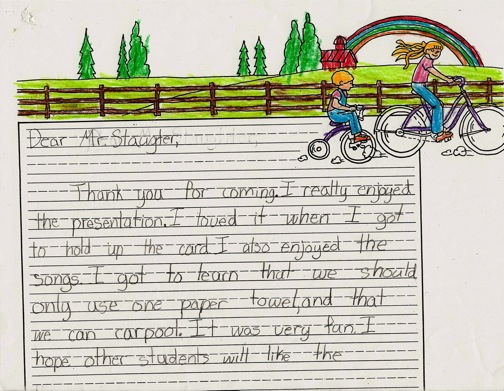 Dear Mr. Slaugter,
Thank you for coming. I really enjoyed
the presentation. I loved it when I got
to hold up the card I also enjoyed the
songs. I got to learn that we should
only use one paper towel, and that
we can carpool. It was very fun. I
hope other students will like the